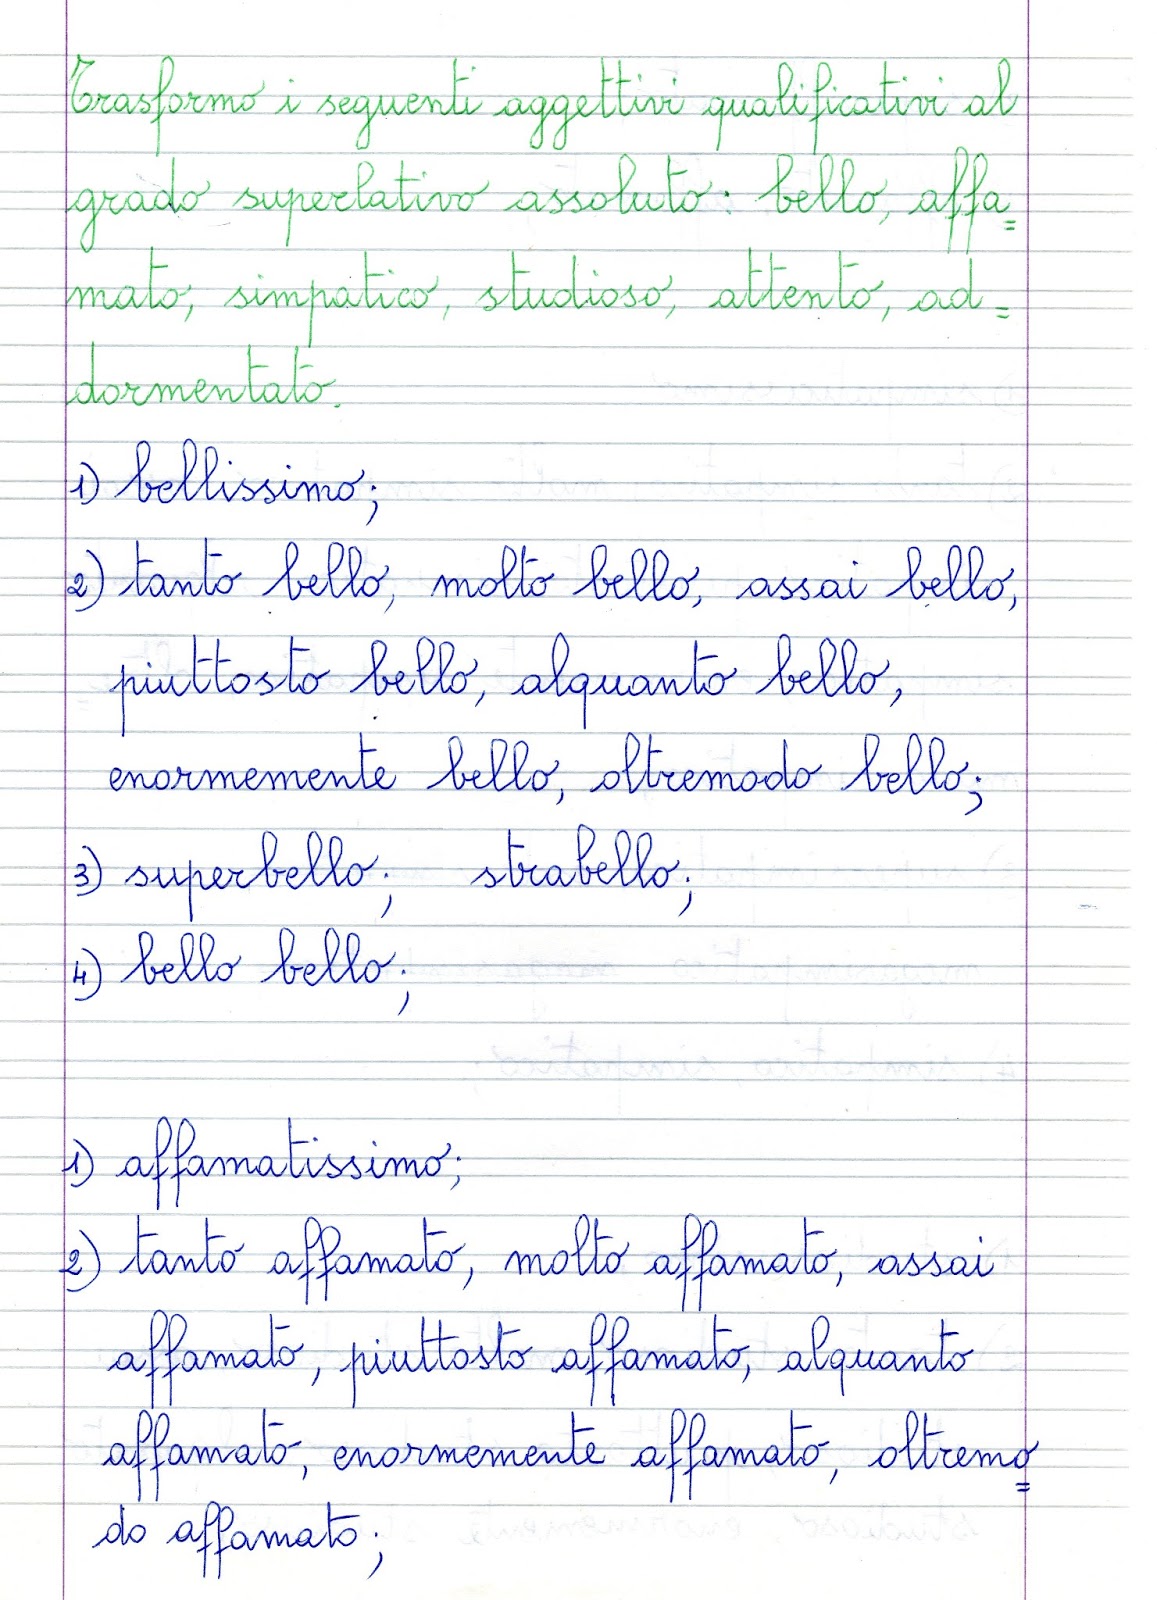 Trasformo i seguenti aggettivi qualificativi al
grado superlativo assoluto: bello, affa=
mato, simpatico, studioso, attento, ad=
dormentato.
1) bellissimo;
2) tanto bello, molto bello, assai bello,
piuttosto bello, alquanto bello,
enormemente bello, oltremodo bello;
3) superbello; strabello;
4) bello bello;
1) affamatissimo;
2) tanto affamato, molto affamato, assai
affamato, piuttosto affamato, alquanto
affamato, enormemente affamato, oltremo=
do affamato;